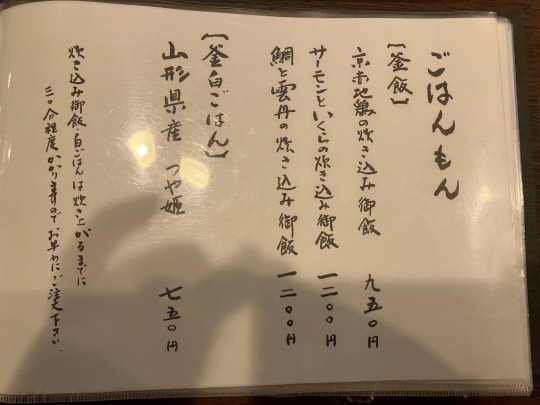 ごはんもん
【釜飯】
京赤地鶏の炊き込み御飯 九五〇円
サーモンといくらの炊き込み御飯 一二〇〇円
鯛と雲丹の炊き込み御飯 一二〇〇円
【釜白ごはん】
山形県産 つや姫 七五〇円
炊き込み御飯・白ごはんは炊き上がるまでに
三〇分程度かかりますのでお早めにご注文下さい。